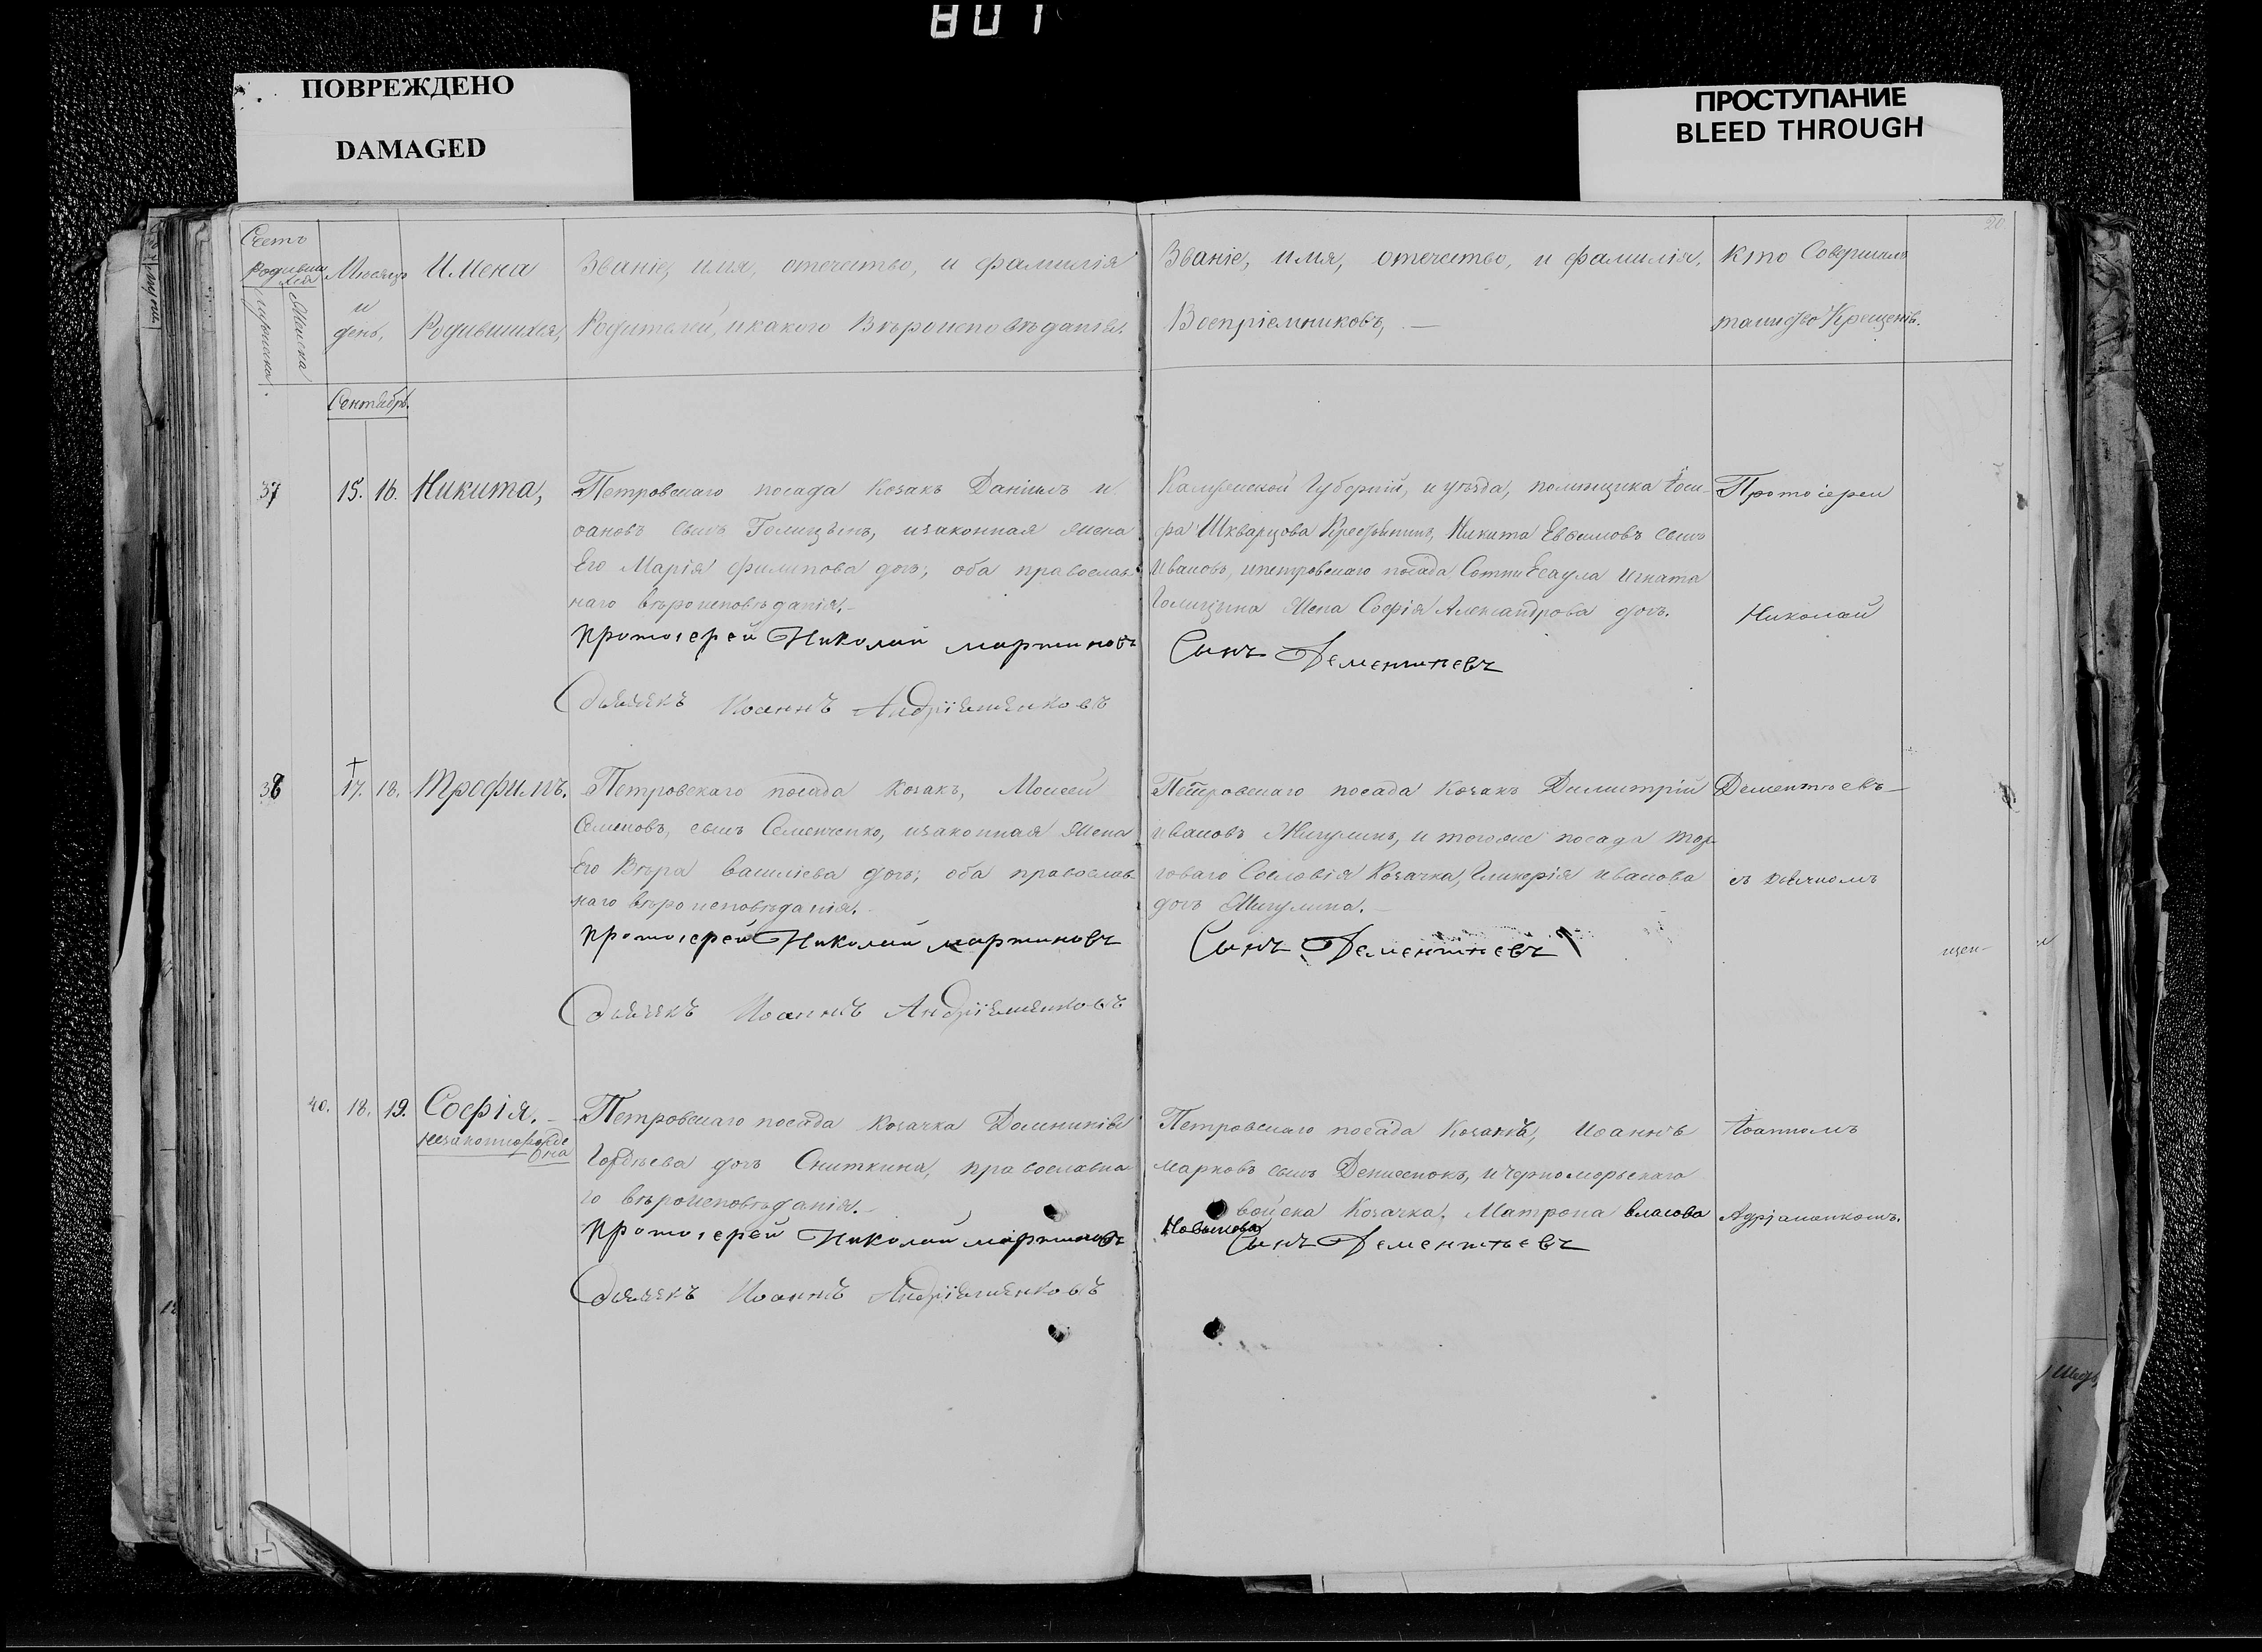 801
ПОВРЕЖДЕНО
DAMAGED
ПРОСТУПАНИЕ
BLEED THROUGH
20
Счетъ
Родивших
ся
Мужеска
Женска
Мѣсяцъ
и
день,
Имена
Родившихся,
Званіе, имя, отечество, и фамилія
Родителей, икакого Вѣроисповѣданія.
Званіе, имя, отечество, и фамилія,
Воспріемниковъ, —
Кто Совершалъ
таинство Крещенія.
Сентябрь.
37
15. 16. Никита,
Петровскаго посада Козакъ Даніилъ и
оановъ сынъ Голицынъ, изаконная жена
Его Марія Филипова дочь, оба православ
наго вѣроисповѣданія.
протоіерей Николай мартиновъ
дьячекъ Иоаннъ Андріяшенковъ
Губерній, и уѣзда, помѣщика Іоси
фа Шкварцова Крестьянинъ, Никита Евѳимовъ сынъ
Ивановъ, ипетровскаго посада Сотни Есаула Игната
Голицына Жена Софія Александрова дочь.
Сынъ Дементьевъ
Протоіереи
Николай
38
17. 18. Трофимъ.
Петровскаго посада козакъ, Моисей
Семеновъ, сынъ Семенченко, изаконная жена
Его Вѣра Василіева дочь, оба православ
наго вѣроисповѣданія.
протоіерей Николай мартиновъ
дьячекъ Иоаннъ Андріяшенковъ
Петровскаго посада Козакъ Димитрій
Ивановъ Жигулинъ, и тогоже посада тор
говаго Сословія Козачка, Гликерія иванова
дочь Жигулина.
Сынъ Дементьевъ
Дементьевъ
съ дьячкомъ
40. 18. 19. Софія.
незаконнорожде
нна
Петровскаго посада козачка Домникія
Гордѣева дочь Сниткина, православна
го вѣроисповѣданія.
протоіерей Николай мартиновъ
дьячекъ Иоаннъ Андріяшенковъ
Петровскаго посада Козакъ, Иоаннъ
Марковъ сынъ Денисенокъ, и Черноморскаго
войска Козачка, Матрона власова
Сынъ Дементьевъ
Іоанномъ